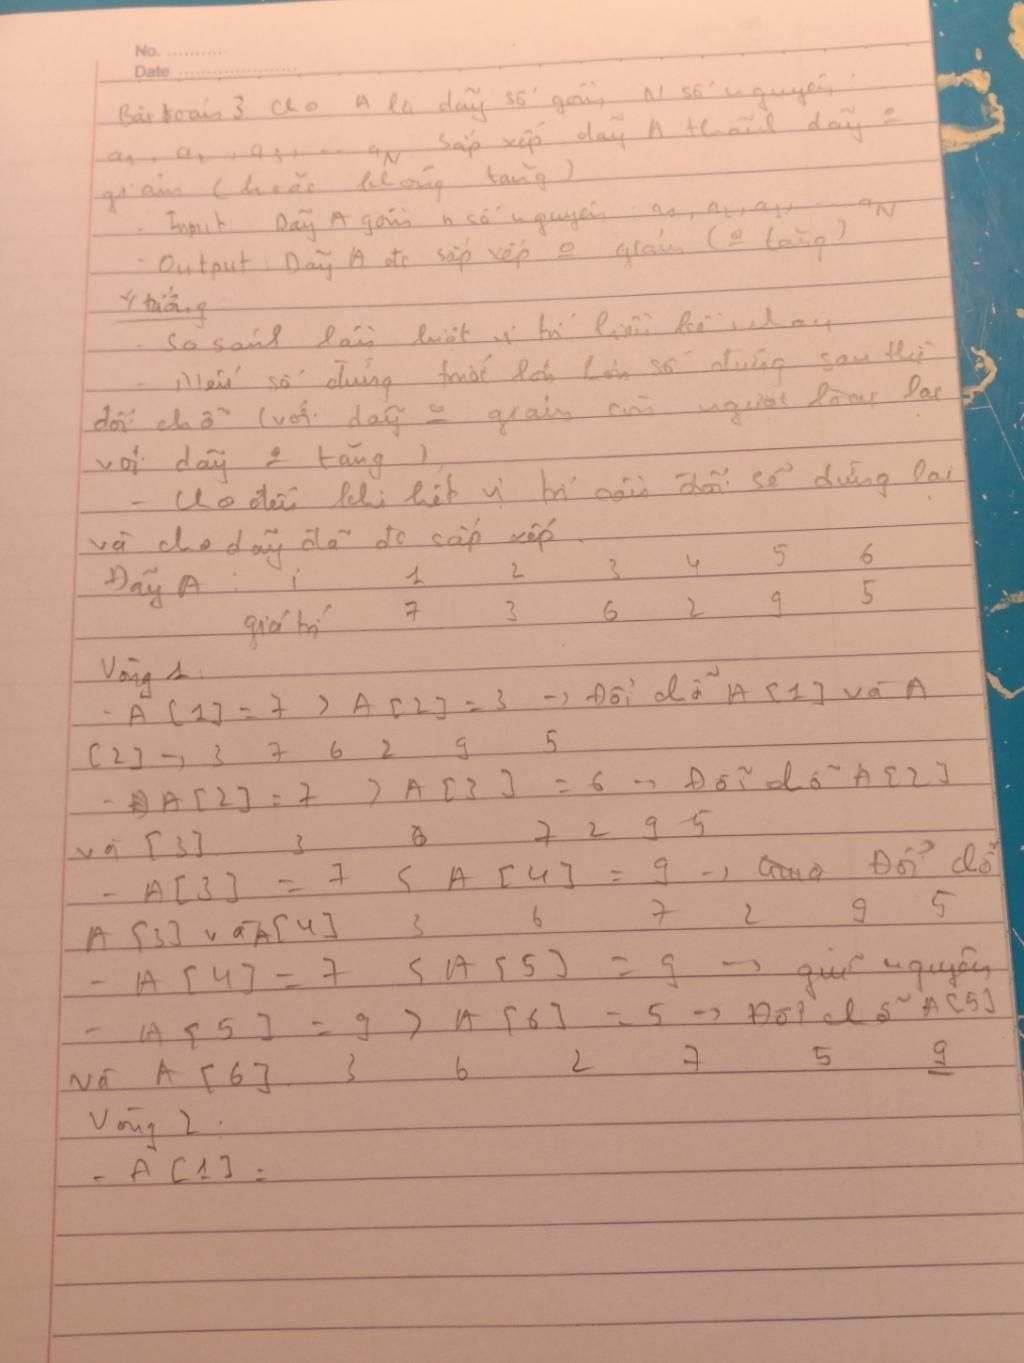 No. ...........
Date ......................
Bài toán 3 Cho A là dãy số gồm N số nguyên
a1, a2, a3, ... aN Sắp xếp dãy A thành dãy =
giảm (hoặc không tăng)
- Input Dãy A gồm n số nguyên: a1, a2, a3, ... aN
- Output: Dãy A đc sắp xếp = giảm (= tăng)
Ý tưởng
- So sánh lần lượt vị trí liền kề nhau
- Nếu số đứng trước lớn hơn số đứng sau thì
đổi chỗ (với dãy = giảm còn ngược lại
với dãy = tăng)
- Cho đến khi hết vị trí cần đổi sẽ dừng lại
và cho dãy đã đc sắp xếp.
Dãy A : i 1 2 3 4 5 6
giá trị 7 3 6 2 9 5
Vòng 1.
- A [1] = 7 > A [2] = 3 -> Đổi chỗ A [1] và A
[2] -> 3 7 6 2 9 5
- A [2] = 7 > A [3] = 6 -> Đổi chỗ A [2]
và [3] 3 6 7 2 9 5
- A [3] = 7 < A [4] = 9 -> Đổi chỗ
A [3] và A [4] 3 6 7 2 9 5
- A [4] = 7 < A [5] = 9 -> giữ nguyên
- A [5] = 9 > A [6] = 5 -> Đổi chỗ A [5]
và A [6] 3 6 2 7 5 9
Vòng 2.
- A [1] =